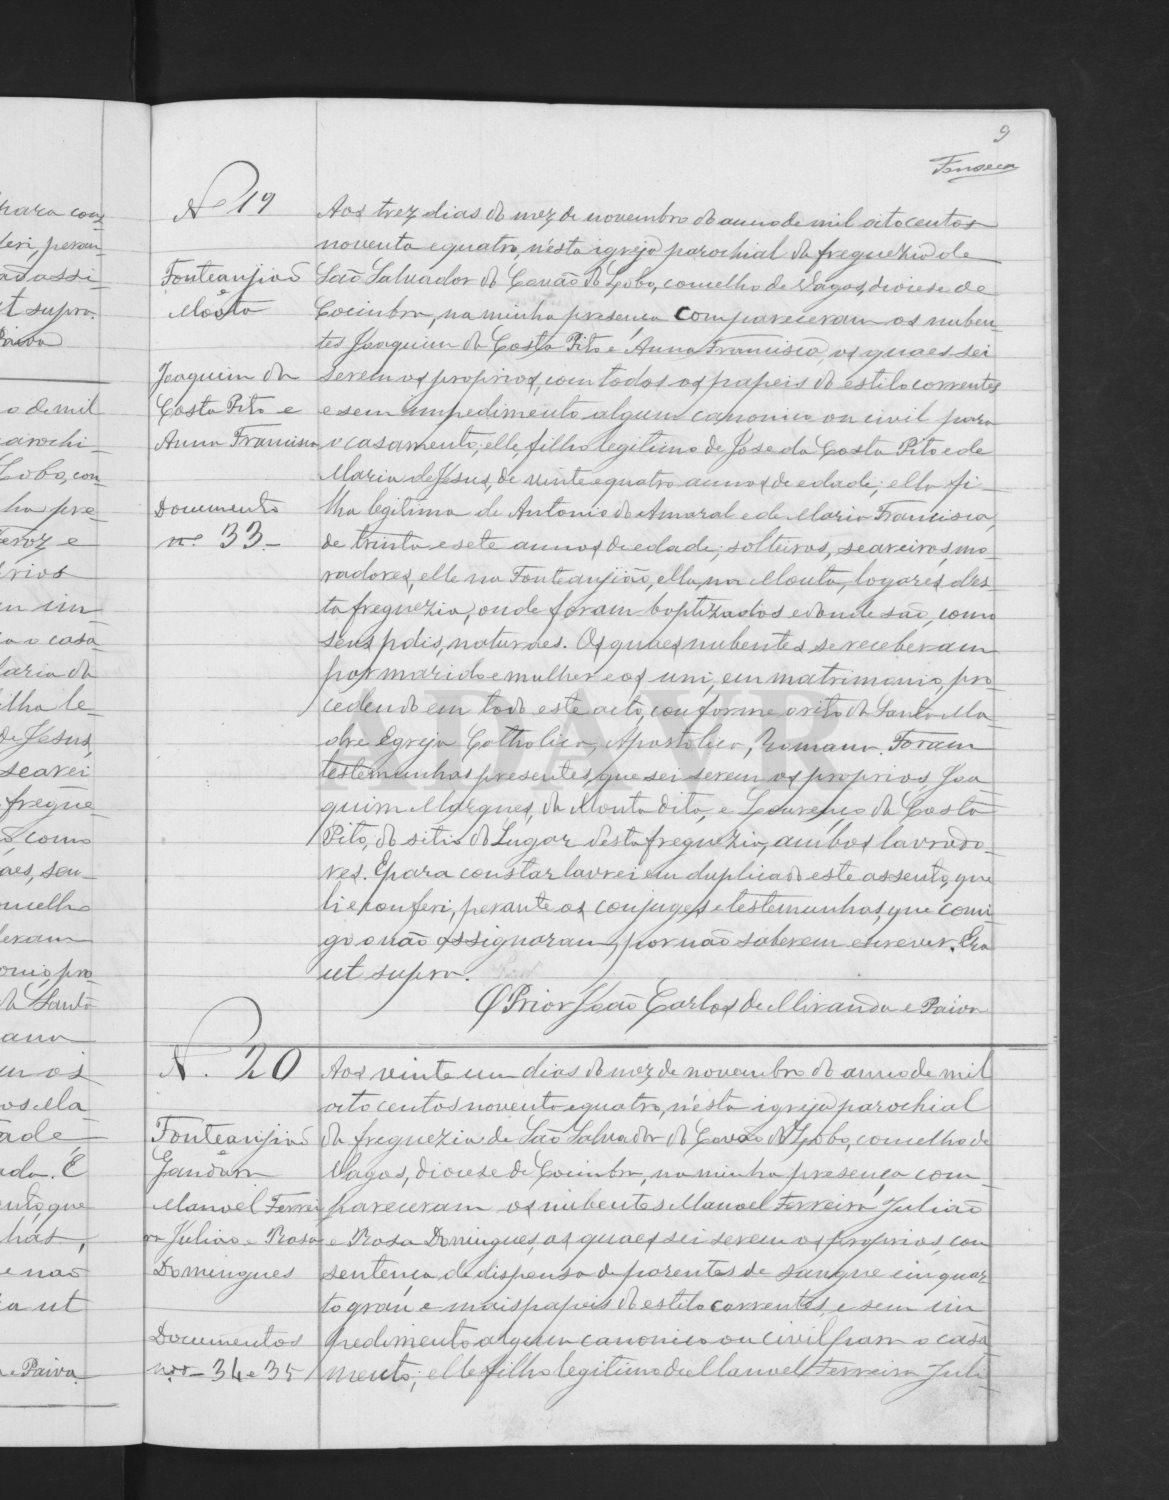 9
Fonseca
Nº 19
Fonteanjião
e
Mouta
Joaquim da
Costa Pito e
Anna Francisca
Documento
nº 33.
Aos trez dias do mez de novembro do anno de mil oitocentos
noventa e quatro, n'esta igreja parochial da freguezia de
São Salvador do Covão do Lobo, concelho de Vagos, diocese de
Coimbra, na minha presença compareceram os nuben-
tes Joaquim da Costa Pito e Anna Francisca, os quaes sei
serem os proprios, com todos os papeis do estilo correntes
e sem impedimento algum canonico ou civil para
o casamento; elle, filho legitimo de José da Costa Pito e de
Maria de Jesus, de vinte e quatro annos de edade; ella fi-
lha legitima de Antonio do Amaral e de Maria Francisca,
de trinta e sete annos de edade; solteiros, seareiros, mo-
radores, elle na Fonteanjião, ella, na Mouta, logares des-
ta freguezia, onde foram baptizados e donde são, como
seus pais, naturaes. Os quaes nubentes se receberam
por marido e mulher e os uni, em matrimonio, pro-
cedendo em todo este acto, conforme o rito da Santa Ma-
dre Egreja Catholica, Apostolica, Romana. Foram
testemunhas presentes, que sei serem os proprios, Joa-
quim Marques, da Mouta dita, e Lourenço da Costa
Pito, do sitio do Lugar desta freguezia, ambos lavrado-
res. E para constar lavrei em duplicado este assento, que
li e conferi, perante os conjuges e testemunhas, que comi-
go o não assignaram, por não saberem escrever. Era
ut supra.
O Prior João Carlos de Miranda e Paiva
N. 20
Fonteanjião
e
Gandara
Manoel Ferrei
ra Julião e Rosa
Domingues
Documentos
nos - 34 e 35
Aos vinte um dias do mez de novembro do anno de mil
oito centos noventa e quatro, n'esta igreja parochial
da freguezia de São Salvador do Covão do Lobo, concelho de
Vagos, diocese de Coimbra, na minha presença com-
pareceram os nubentes Manoel Ferreira Julião
e Rosa Domingues, os quaes sei serem os proprios, com
sentença de dispensa de parentes de sangue em quar-
to grau e mais papeis do estilo correntes, e sem im
pedimento algum canonico ou civil para o casa
mento; elle filho legitimo de Manoel Ferreira Juli-
ADAVR